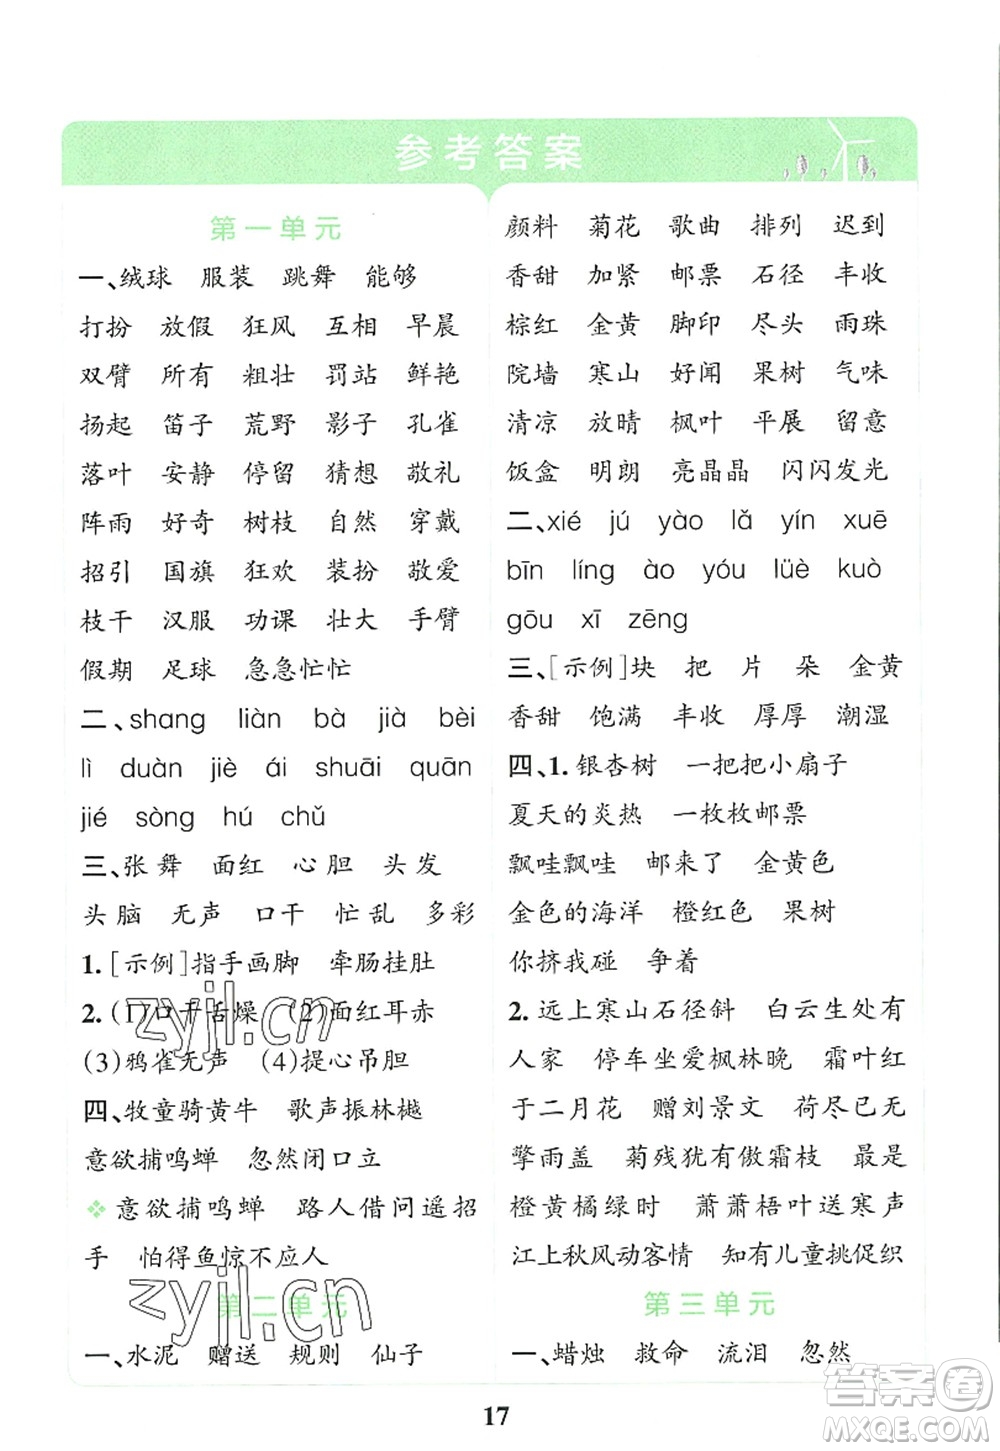 参考答案
第一单元
一、绒球 服装 跳舞 能够
打扮 放假 狂风 互相 早晨
双臂 所有 粗壮 罚站 鲜艳
扬起 笛子 荒野 影子 孔雀
落叶 安静 停留 猜想 敬礼
阵雨 好奇 树枝 自然 穿戴
招引 国旗 狂欢 装扮 敬爱
枝干 汉服 功课 壮大 手臂
假期 足球 急急忙忙
二、shang liàn bà jià bèi
lì duàn jiè ái shuāi quān
jié sòng hú chǔ
三、张 舞 面红 心 胆 头 发
头 脑 无声 口干 忙 乱 多彩
1.[示例]指手画脚 牵肠挂肚
2.(1)口干舌燥 (2)面红耳赤
(3)鸦雀无声 (4)提心吊胆
四、牧童骑黄牛 歌声振林樾
意欲捕鸣蝉 忽然闭口立
意欲捕鸣蝉 路人借问遥招
手 怕得鱼惊不应人
第二单元
一、水泥 赠送 规则 仙子
颜料 菊花 歌曲 排列 迟到
香甜 加紧 邮票 石径 丰收
棕红 金黄 脚印 尽头 雨珠
院墙 寒山 好闻 果树 气味
清凉 放晴 枫叶 平展 留意
饭盒 明朗 亮晶晶 闪闪发光
二、xié jú yào lǎ yín xuē
bīn líng ào yóu lüè kuò
gōu xī zēng
三、[示例]块 把 片 朵 金黄
香甜 饱满 丰收 厚厚 潮湿
四、1.银杏树 一把把小扇子
夏天的炎热 一枚枚邮票
飘哇飘哇 邮来了 金黄色
金色的海洋 橙红色 果树
你挤我碰 争着
2.远上寒山石径斜 白云生处有
人家 停车坐爱枫林晚 霜叶红
于二月花 赠刘景文 荷尽已无
擎雨盖 菊残犹有傲霜枝 最是
橙黄橘绿时 萧萧梧叶送寒声
江上秋风动客情 知有儿童挑促织
第三单元
一、蜡烛 救命 流泪 忽然
17
zyjl.cn
zyjl.cn
答案卷
MXQE.COM